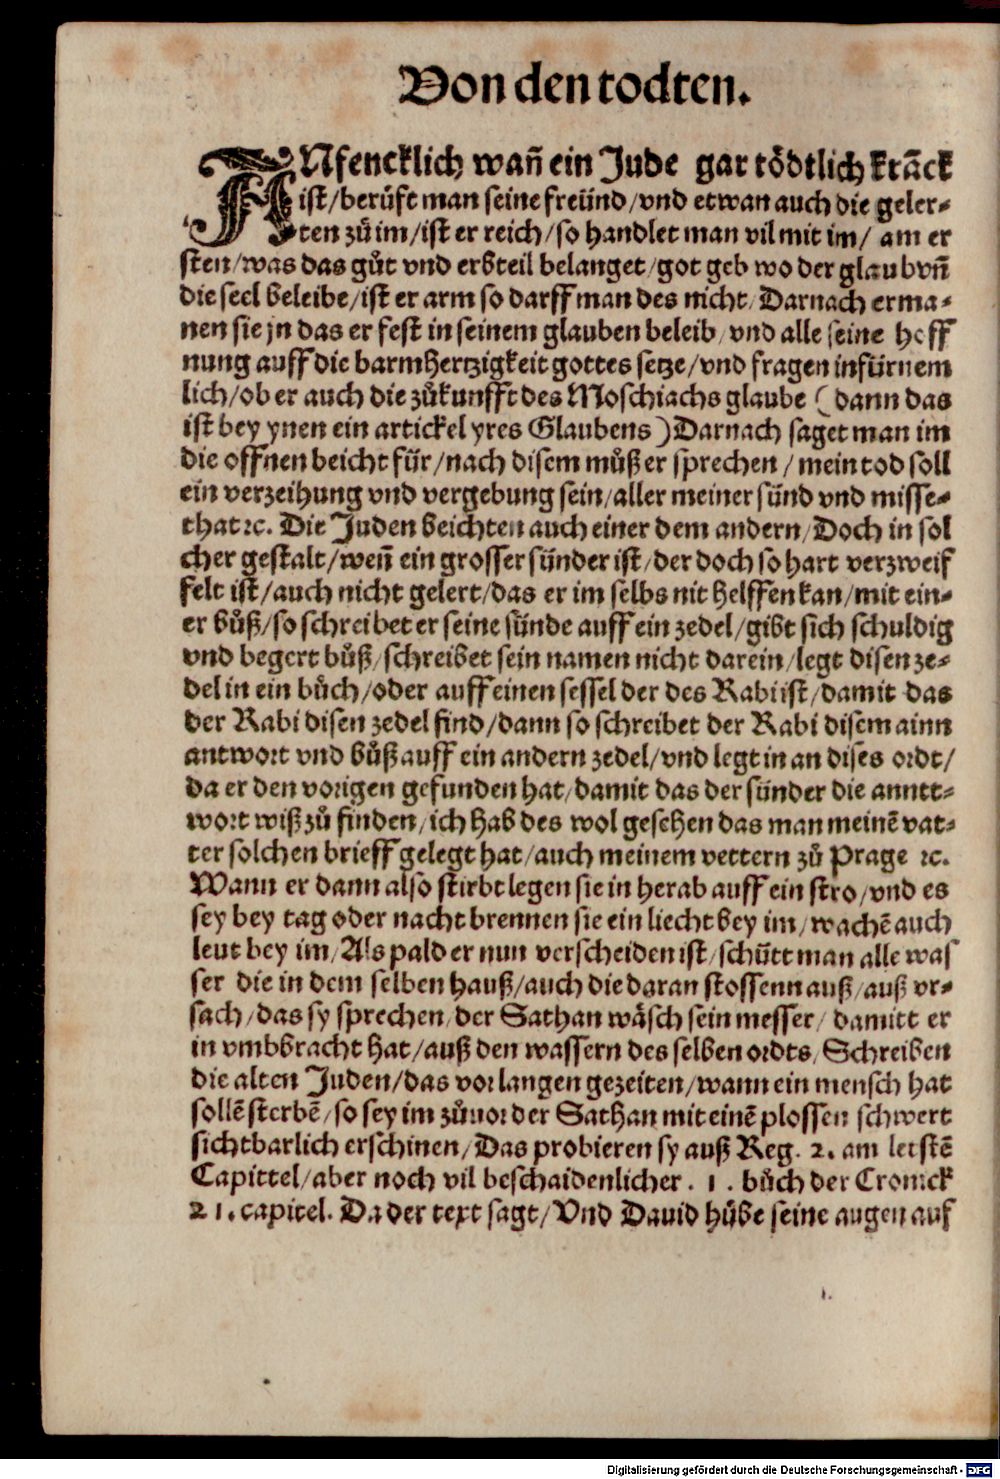 Von den todten.
ANfencklich wañ ein Jude gar tödtlich krãck
ist/berůft man seine freünd/vnd etwan auch die geler⸗
ten zů im/ist er reich/so handlet man vil mit im/ am er
sten/was das gůt vnd erbteil belanget/got geb wo der glaub vñ
die seel beleibe/ist er arm so darff man des nicht/Darnach erma⸗
nen sie jn das er fest in seinem glauben beleib/vnd alle seine hoff
nung auff die barmhertzigkeit gottes setze/vnd fragen in fürnem
lich/ob er auch die zůkunfft des Moschiachs glaube (dann das
ist bey ynen ein artickel yres Glaubens) Darnach saget man im
die offnen beicht für/nach disem můß er sprechen/mein tod soll
ein verzeihung vnd vergebung sein/aller meiner sünd vnd misse⸗
that ꝛc. Die Juden beichten auch einer dem andern/Doch in sol
cher gestalt/weñ ein grosser sünder ist/der doch so hart verzweif
felt ist/auch nicht gelert/das er im selbs nit helffen kan/mit ein⸗
er bůß/so schreibet er seine sünde auff ein zedel/gibt sich schuldig
vnd begert bůß/schreibet sein namen nicht darein/legt disen ze⸗
del in ein bůch/oder auff einen sessel der des Rabi ist/damit das
der Rabi disen zedel find/dann so schreibet der Rabi disem ainn
antwort vnd bůß auff ein andern zedel/vnd legt in an dises ordt/
da er den vorigen gefunden hat/damit das der sünder die anntt⸗
wort wiß zů finden/ich hab des wol gesehen das man meinē vat⸗
ter solchen brieff gelegt hat/auch meinem vettern zů Prage ꝛc.
Wann er dann also stirbt legen sie in herab auff ein stro/vnd es
sey bey tag oder nacht brennen sie ein liecht bey im/wachē auch
leut bey im/Als pald er nun verscheiden ist/schütt man alle was
ser die in dem selben hauß/auch die daran stossenn auß/auß vr⸗
sach/das sy sprechen/der Sathan wäsch sein messer/damitt er
in vmbbracht hat/auß den wassern des selben ordts/Schreiben
die alten Juden/das vor langen gezeiten/wann ein mensch hat
sollē sterbē/so sey im zůuor der Sathan mit einē plossen schwert
sichtbarlich erschinen/Das probieren sy auß Reg. 2. am letstē
Capittel/aber noch vil beschaidenlicher. 1. bůch der Cronick
21. capitel. Da der text sagt/Vnd Dauid hůbe seine augen auf
Digitalisierung gefördert durch die Deutsche Forschungsgemeinschaft - DFG